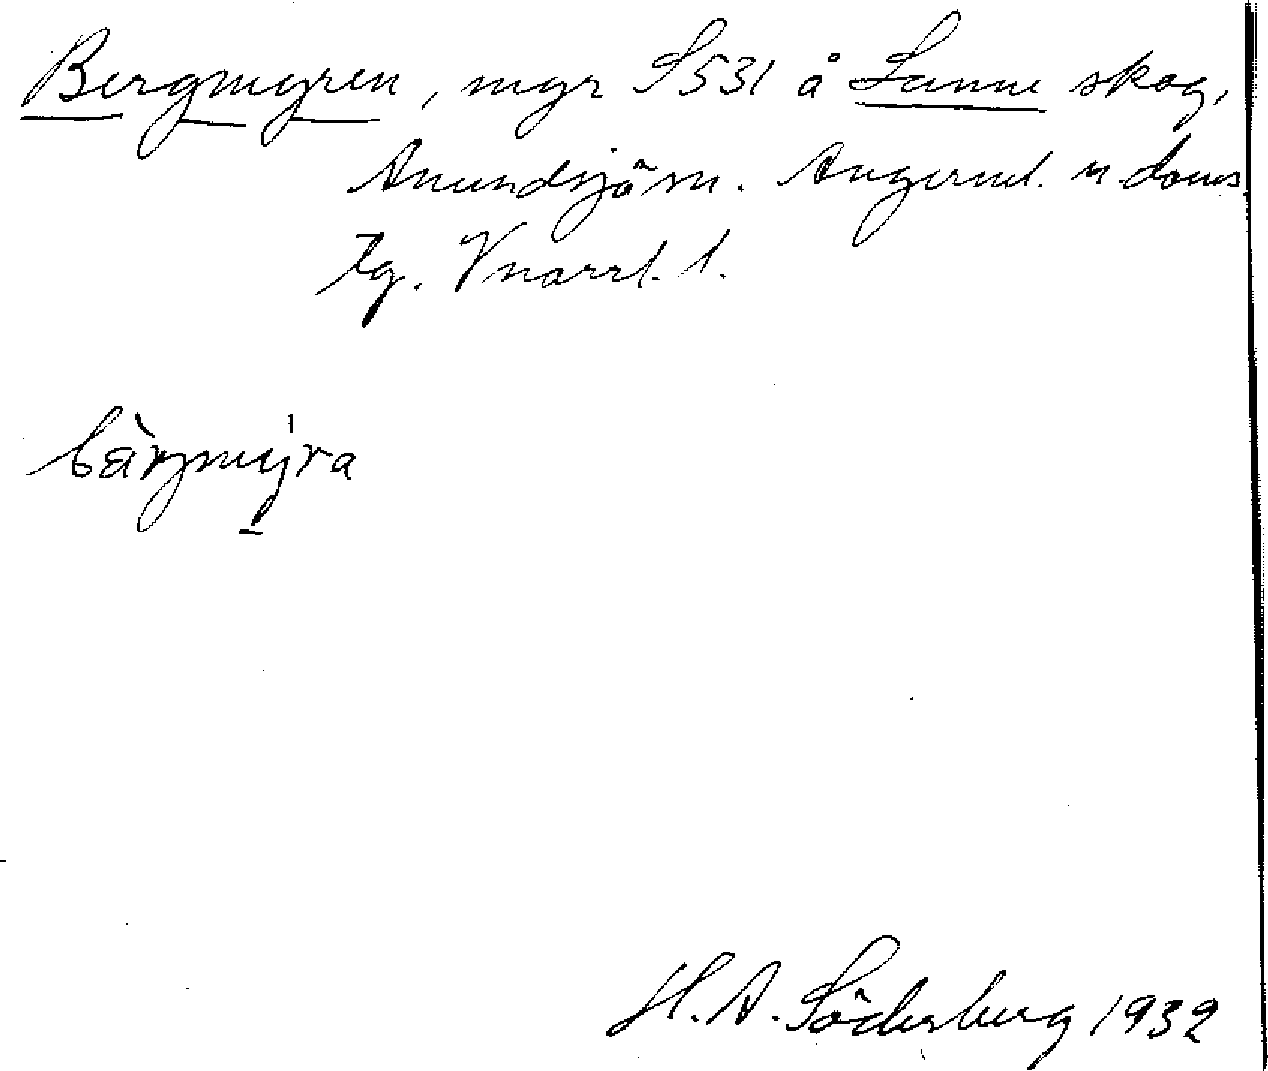 Bergmyren, myr S531 å Lunne skog,
Anundsjö sn. Ångerml. n. doms
tg. Vnorrl. l.
bärgmyra
H. A. Söderberg 1932